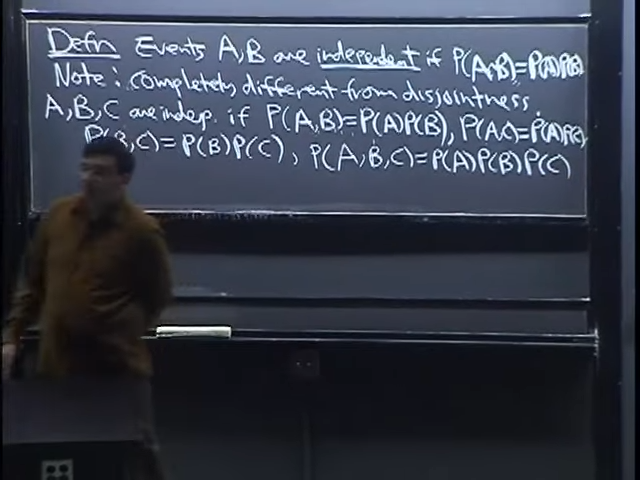 Defn Events A,B are independent if P(A∩B)=P(A)P(B)
Note: completely different from disjointness.
A,B,C are indep. if P(A,B)=P(A)P(B), P(A,C)=P(A)P(C),
P(B,C)=P(B)P(C), P(A,B,C)=P(A)P(B)P(C)